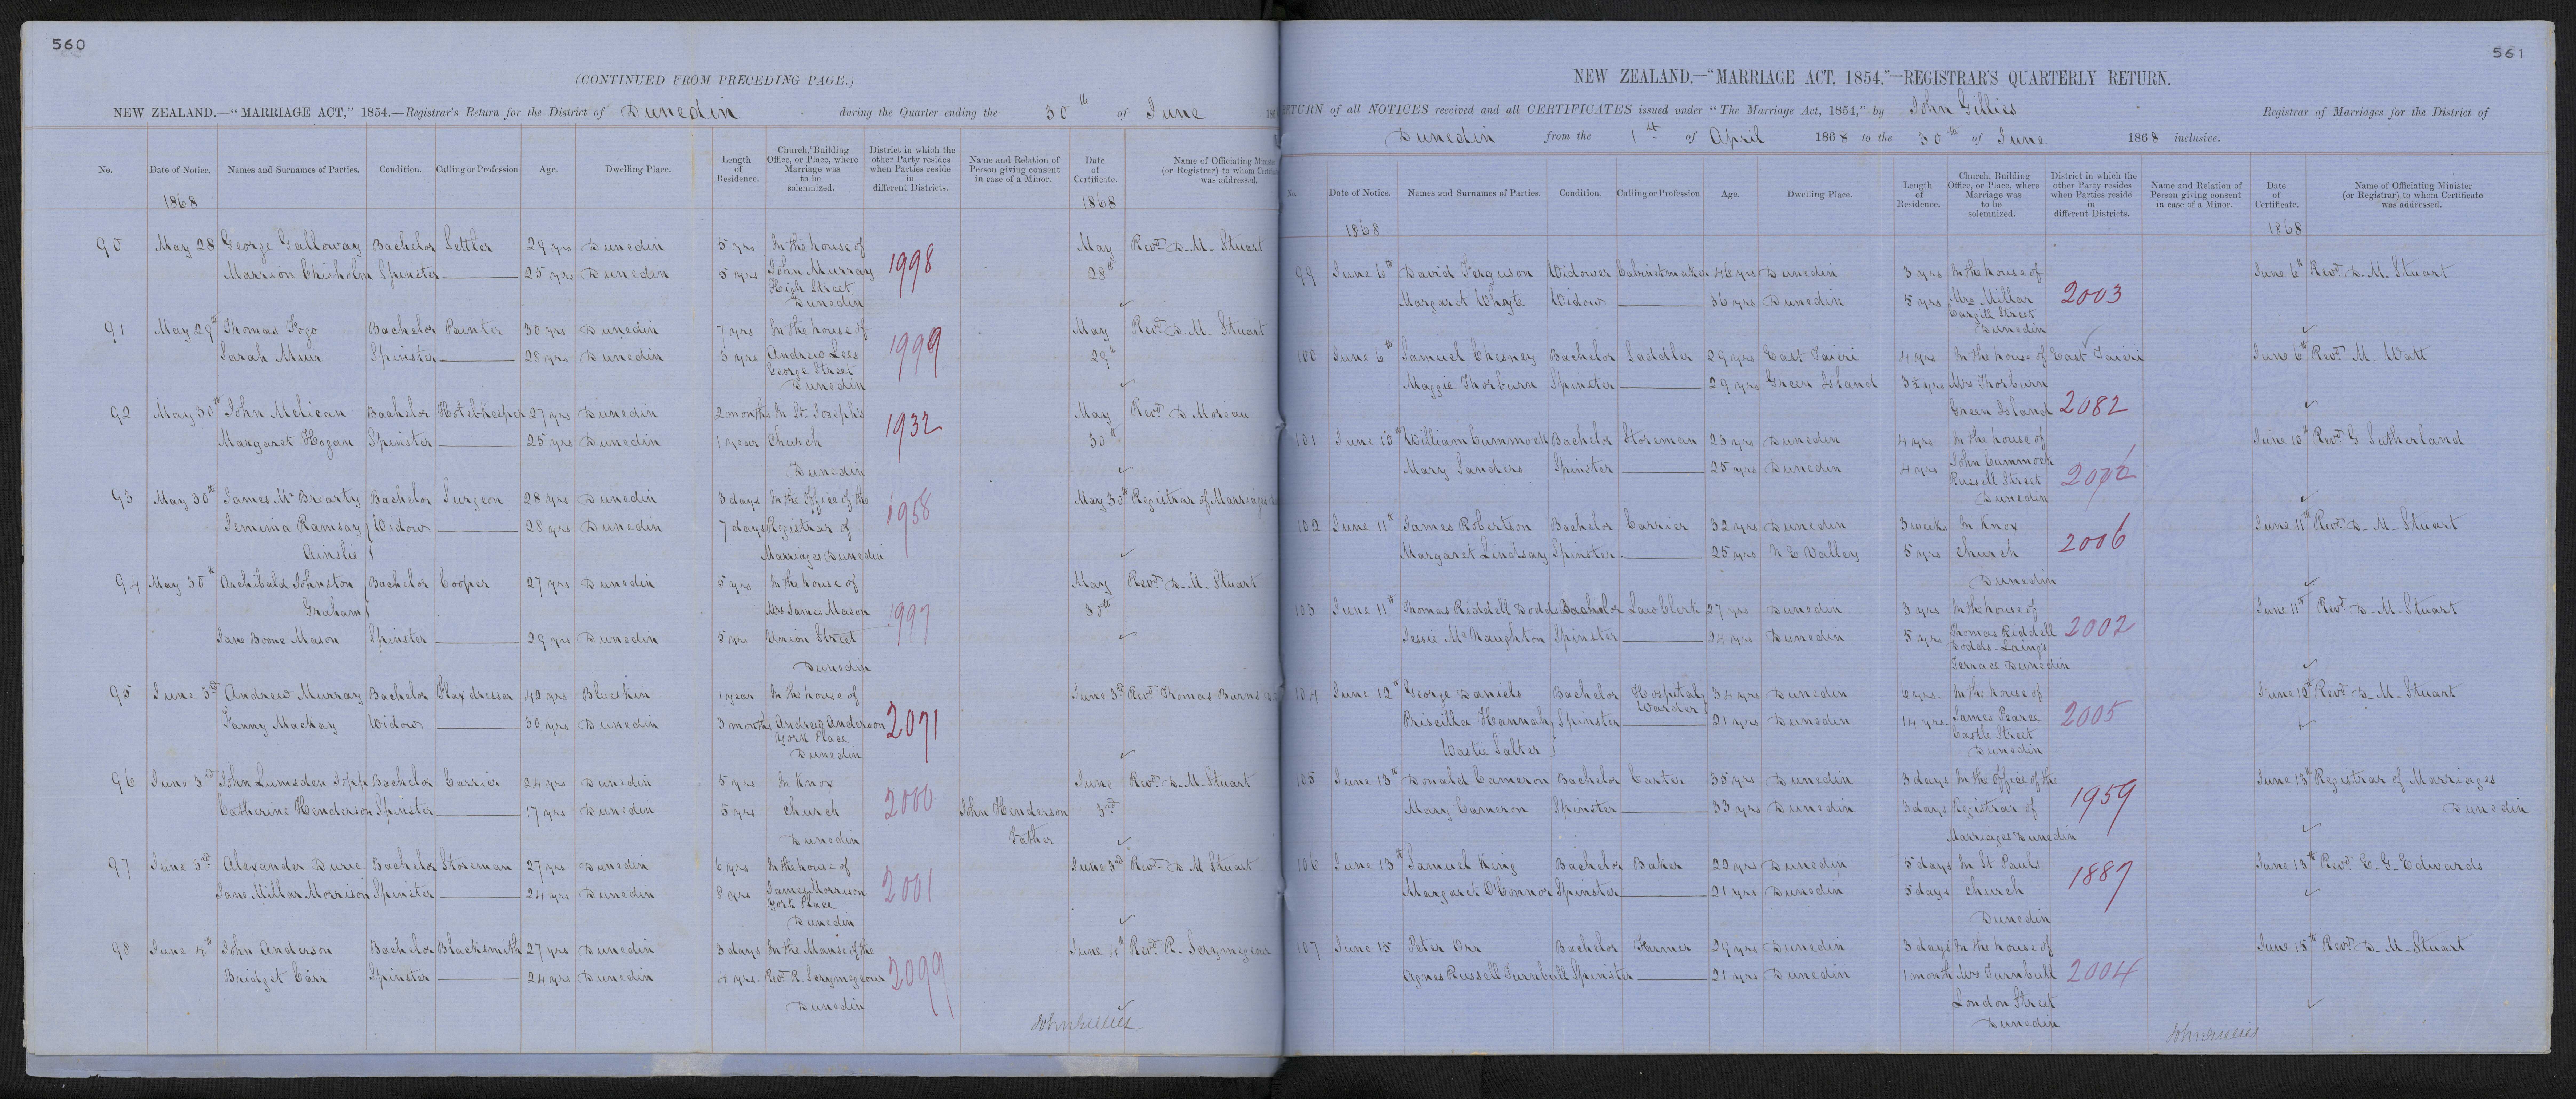 560
(CONTINUED FROM PRECEDING PAGE.)
NEW ZEALAND.—"MARRIAGE ACT," 1854.—Registrar's Return for the District of Dunedin during the Quarter ending the 30th of June 186
No. Date of Notice. Names and Surnames of Parties. Condition. Calling or Profession Age. Dwelling Place. Length of Residence. Church, Building Office, or Place, where Marriage was to be solemnized. District in which the other Party resides when Parties reside in different Districts. Name and Relation of Person giving consent in case of a Minor. Date of Certificate. Name of Officiating Minister (or Registrar) to whom Certificate was addressed.
1868 1868
90 May 28 George Galloway Bachelor Settler 29 yrs Dunedin 5 yrs In the house of May Revd. D. M. Stuart
Marrion Chisholm Spinster 25 yrs Dunedin 5 yrs John Murray 1998 28th
High Street
Dunedin
91 May 29th Thomas Fogo Bachelor Painter 30 yrs Dunedin 7 yrs In the house of May Revd. D. M. Stuart
Sarah Muir Spinster 28 yrs Dunedin 3 yrs Andrew Lees 1999 29th
George Street
Dunedin
92 May 30th John Melican Bachelor Hotel-keeper 27 yrs Dunedin 2 months In St. Josephs May Revd. D Moreau
Margaret Hogan Spinster 25 yrs Dunedin 1 year Church 1932 30th
Dunedin
93 May 30th James McBrearty Bachelor Surgeon 28 yrs Dunedin 3 days In the Office of the May 30th Registrar of Marriages
Jemima Ramsay Widow 28 yrs Dunedin 7 days Registrar of 1958
Ainslie Marriages Dunedin
94 May 30th Archibald Johnston Bachelor Cooper 27 yrs Dunedin 5 yrs In the house of May Revd. D. M. Stuart
Graham Mrs James Mason 1997 30th
Jane Boone Mason Spinster 29 yrs Dunedin 5 yrs Union Street
Dunedin
95 June 3rd Andrew Murray Bachelor Flaxdresser 42 yrs Blueskin 1 year In the house of June 3rd Revd. Thomas Burns
Fanny Mackay Widow 30 yrs Dunedin 3 months Andrew Anderson 2071
York Place
Dunedin
96 June 3rd John Lumsden Topp Bachelor Carrier 24 yrs Dunedin 5 yrs In Knox June Revd. D. M. Stuart
Catherine Henderson Spinster 17 yrs Dunedin 5 yrs Church 2000 John Henderson 3rd
Dunedin Father
97 June 3rd Alexander Durie Bachelor Storeman 27 yrs Dunedin 6 yrs In the house of June 3rd Revd. D M Stuart
Jane Millar Morrison Spinster 24 yrs Dunedin 8 yrs James Morrison 2001
York Place
Dunedin
98 June 4th John Anderson Bachelor Blacksmith 27 yrs Dunedin 3 days In the Manse of the June 4th Revd. R. Scrymgeour
Bridget Carr Spinster 24 yrs Dunedin 4 yrs. Revd. R. Scrymgeour 2099
Dunedin
John Gillies
561
NEW ZEALAND.—"MARRIAGE ACT, 1854."—REGISTRAR'S QUARTERLY RETURN.
RETURN of all NOTICES received and all CERTIFICATES issued under "The Marriage Act, 1854," by John Gillies Registrar of Marriages for the District of
Dunedin from the 1st of April 1868 to the 30th of June 1868 inclusive.
No. Date of Notice. Names and Surnames of Parties. Condition. Calling or Profession Age. Dwelling Place. Length of Residence. Church, Building Office, or Place, where Marriage was to be solemnized. District in which the other Party resides when Parties reside in different Districts. Name and Relation of Person giving consent in case of a Minor. Date of Certificate. Name of Officiating Minister (or Registrar) to whom Certificate was addressed.
1868 1868
99 June 6th David Ferguson Widower Cabinetmaker 46 yrs Dunedin 3 yrs In the house of June 6th Revd. D. M. Stuart
Margaret Whyte Widow 36 yrs Dunedin 5 yrs Mrs Millar 2003
Cargill Street
Dunedin
100 June 6th Samuel Chesney Bachelor Saddler 29 yrs East Taieri 4 yrs In the house of East Taieri June 6th Revd. M. Watt
Maggie Thorburn Spinster 29 yrs Green Island 3½ yrs Mrs Thorburn
Green Island 2082
101 June 10th William Cummock Bachelor Storeman 23 yrs Dunedin 4 yrs In the house of June 10th Revd. G Sutherland
Mary Sanders Spinster 25 yrs Dunedin 4 yrs John Cummock
Russell Street
Dunedin
102 June 11th James Robertson Bachelor Carrier 32 yrs Dunedin 3 weeks In Knox June 11th Revd. D. M. Stuart
Margaret Lindsay Spinster 25 yrs N E Valley 5 yrs Church 2006
Dunedin
103 June 11th Thomas Riddell Dodds Bachelor Law Clerk 27 yrs Dunedin 3 yrs In the house of June 11th Revd. D. M. Stuart
Jessie McNaughton Spinster 24 yrs Dunedin 5 yrs Thomas Riddell 2002
Dodds. Laings
Terrace Dunedin
104 June 12th George Daniels Bachelor Hospital 34 yrs Dunedin 6 yrs. In the house of June 12th Revd. D. M. Stuart
Warder
Priscilla Hannah Spinster 21 yrs Dunedin 14 yrs. James Pearce 2005
Castle Street
Wastie Salter Dunedin
105 June 13th Donald Cameron Bachelor Carter 35 yrs Dunedin 3 days In the office of the June 13th Registrar of Marriages
Mary Cameron Spinster 33 yrs Dunedin 3 days Registrar of 1959 Dunedin
Marriages Dunedin
106 June 13th Samuel King Bachelor Baker 22 yrs Dunedin 5 days In St Pauls June 13th Revd. E. G. Edwards
Margaret O'Connor Spinster 21 yrs Dunedin 5 days Church 1887
Dunedin
107 June 15 Peter Orr Bachelor Farmer 29 yrs Dunedin 3 days In the house of June 15th Revd. D. M. Stuart
Agnes Russell Turnbull Spinster 21 yrs Dunedin 1 month Mrs. Turnbull 2004
London Street
Dunedin
John Gillies